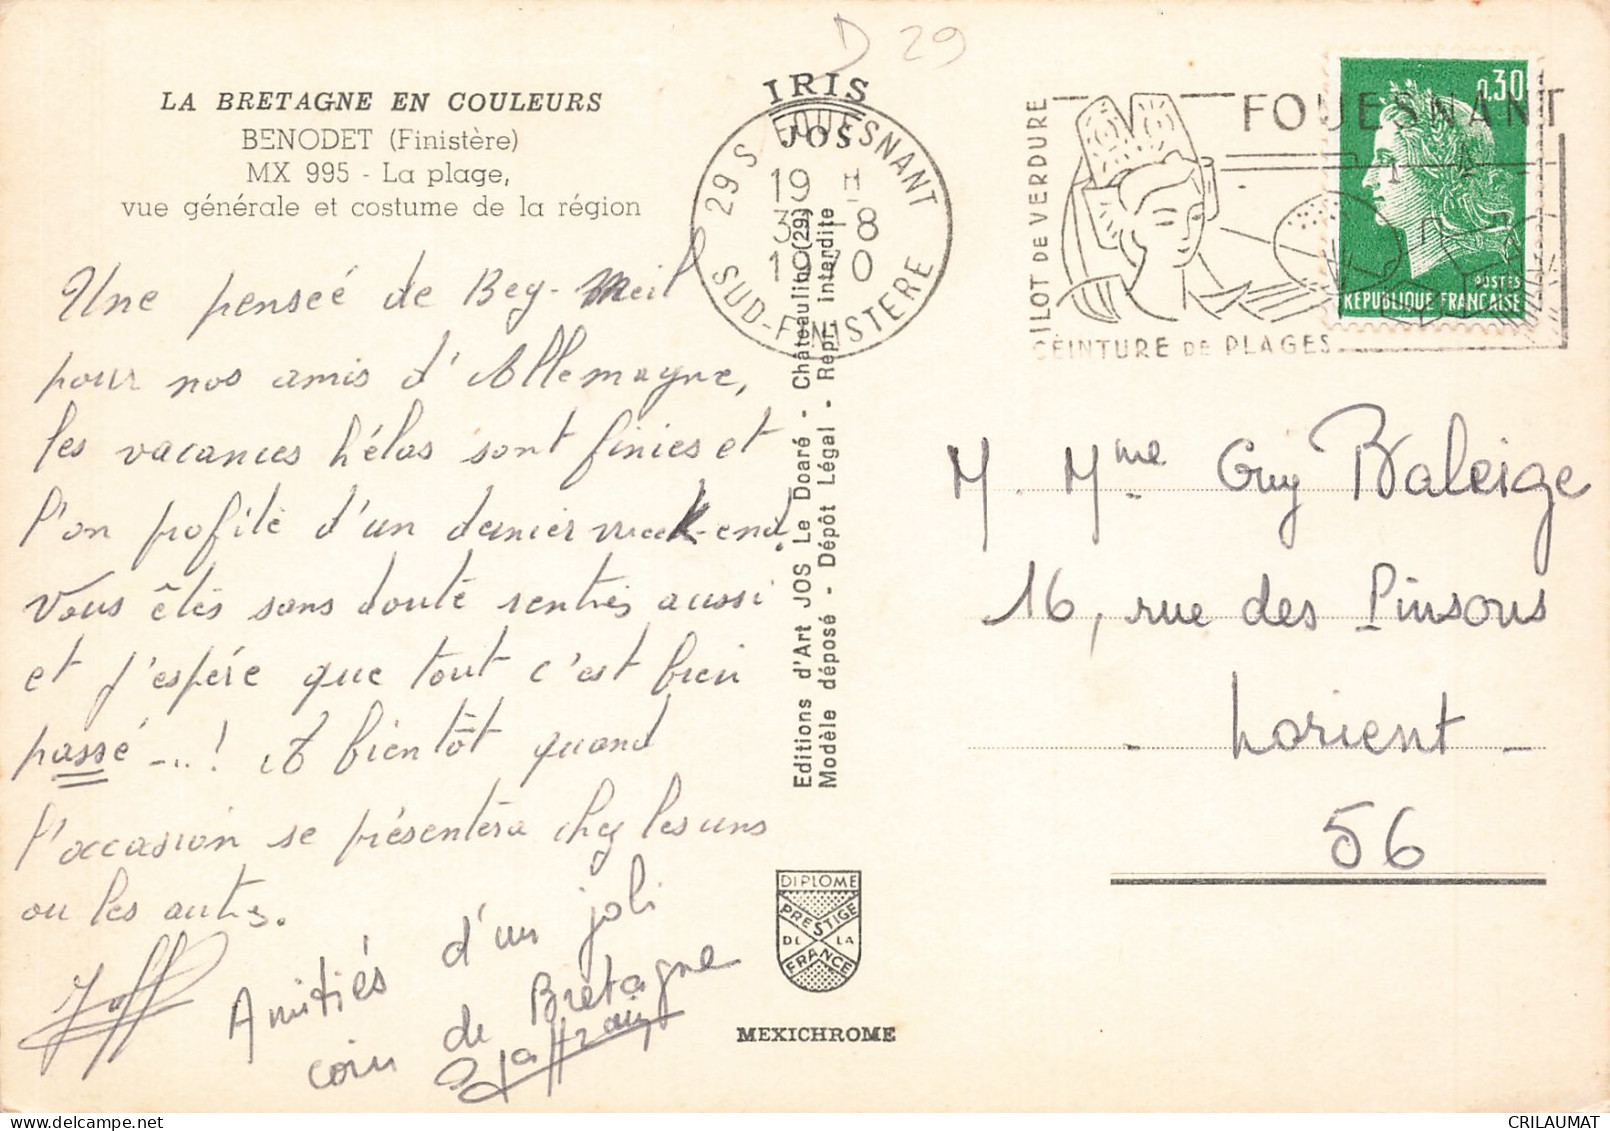 D 29
LA BRETAGNE EN COULEURS
BENODET (Finistère)
MX 995 - La plage,
vue générale et costume de la région
IRIS
JOS
29 S FOUESNANT
19 H
3 -8
19 0
SUD-FINISTERE
FOUESNANT
ILOT DE VERDURE
CEINTURE DE PLAGES
0,30
POSTES
REPUBLIQUE FRANÇAISE
Une pensée de Beg-Meil
pour nos amis d'Allemagne,
les vacances hélas sont finies et
l'on profite d'un dernier week-end.
Vous êtes sans doute rentrés aussi
et j'espère que tout c'est bien
passé -..! A bientôt quand
l'occasion se présentera chez les uns
ou les autres.
Amitiés d'un joli
coin de Bretagne
Editions d'Art JOS Le Doaré - Châteaulin (29)
Modèle déposé - Dépôt Légal - Repr. interdite
M. Mme Guy Baleige
16, rue des Pinsons
- Lorient -
56
DIPLOME
PRESTIGE
DE LA
FRANCE
MEXICHROME
CRILAUMAT